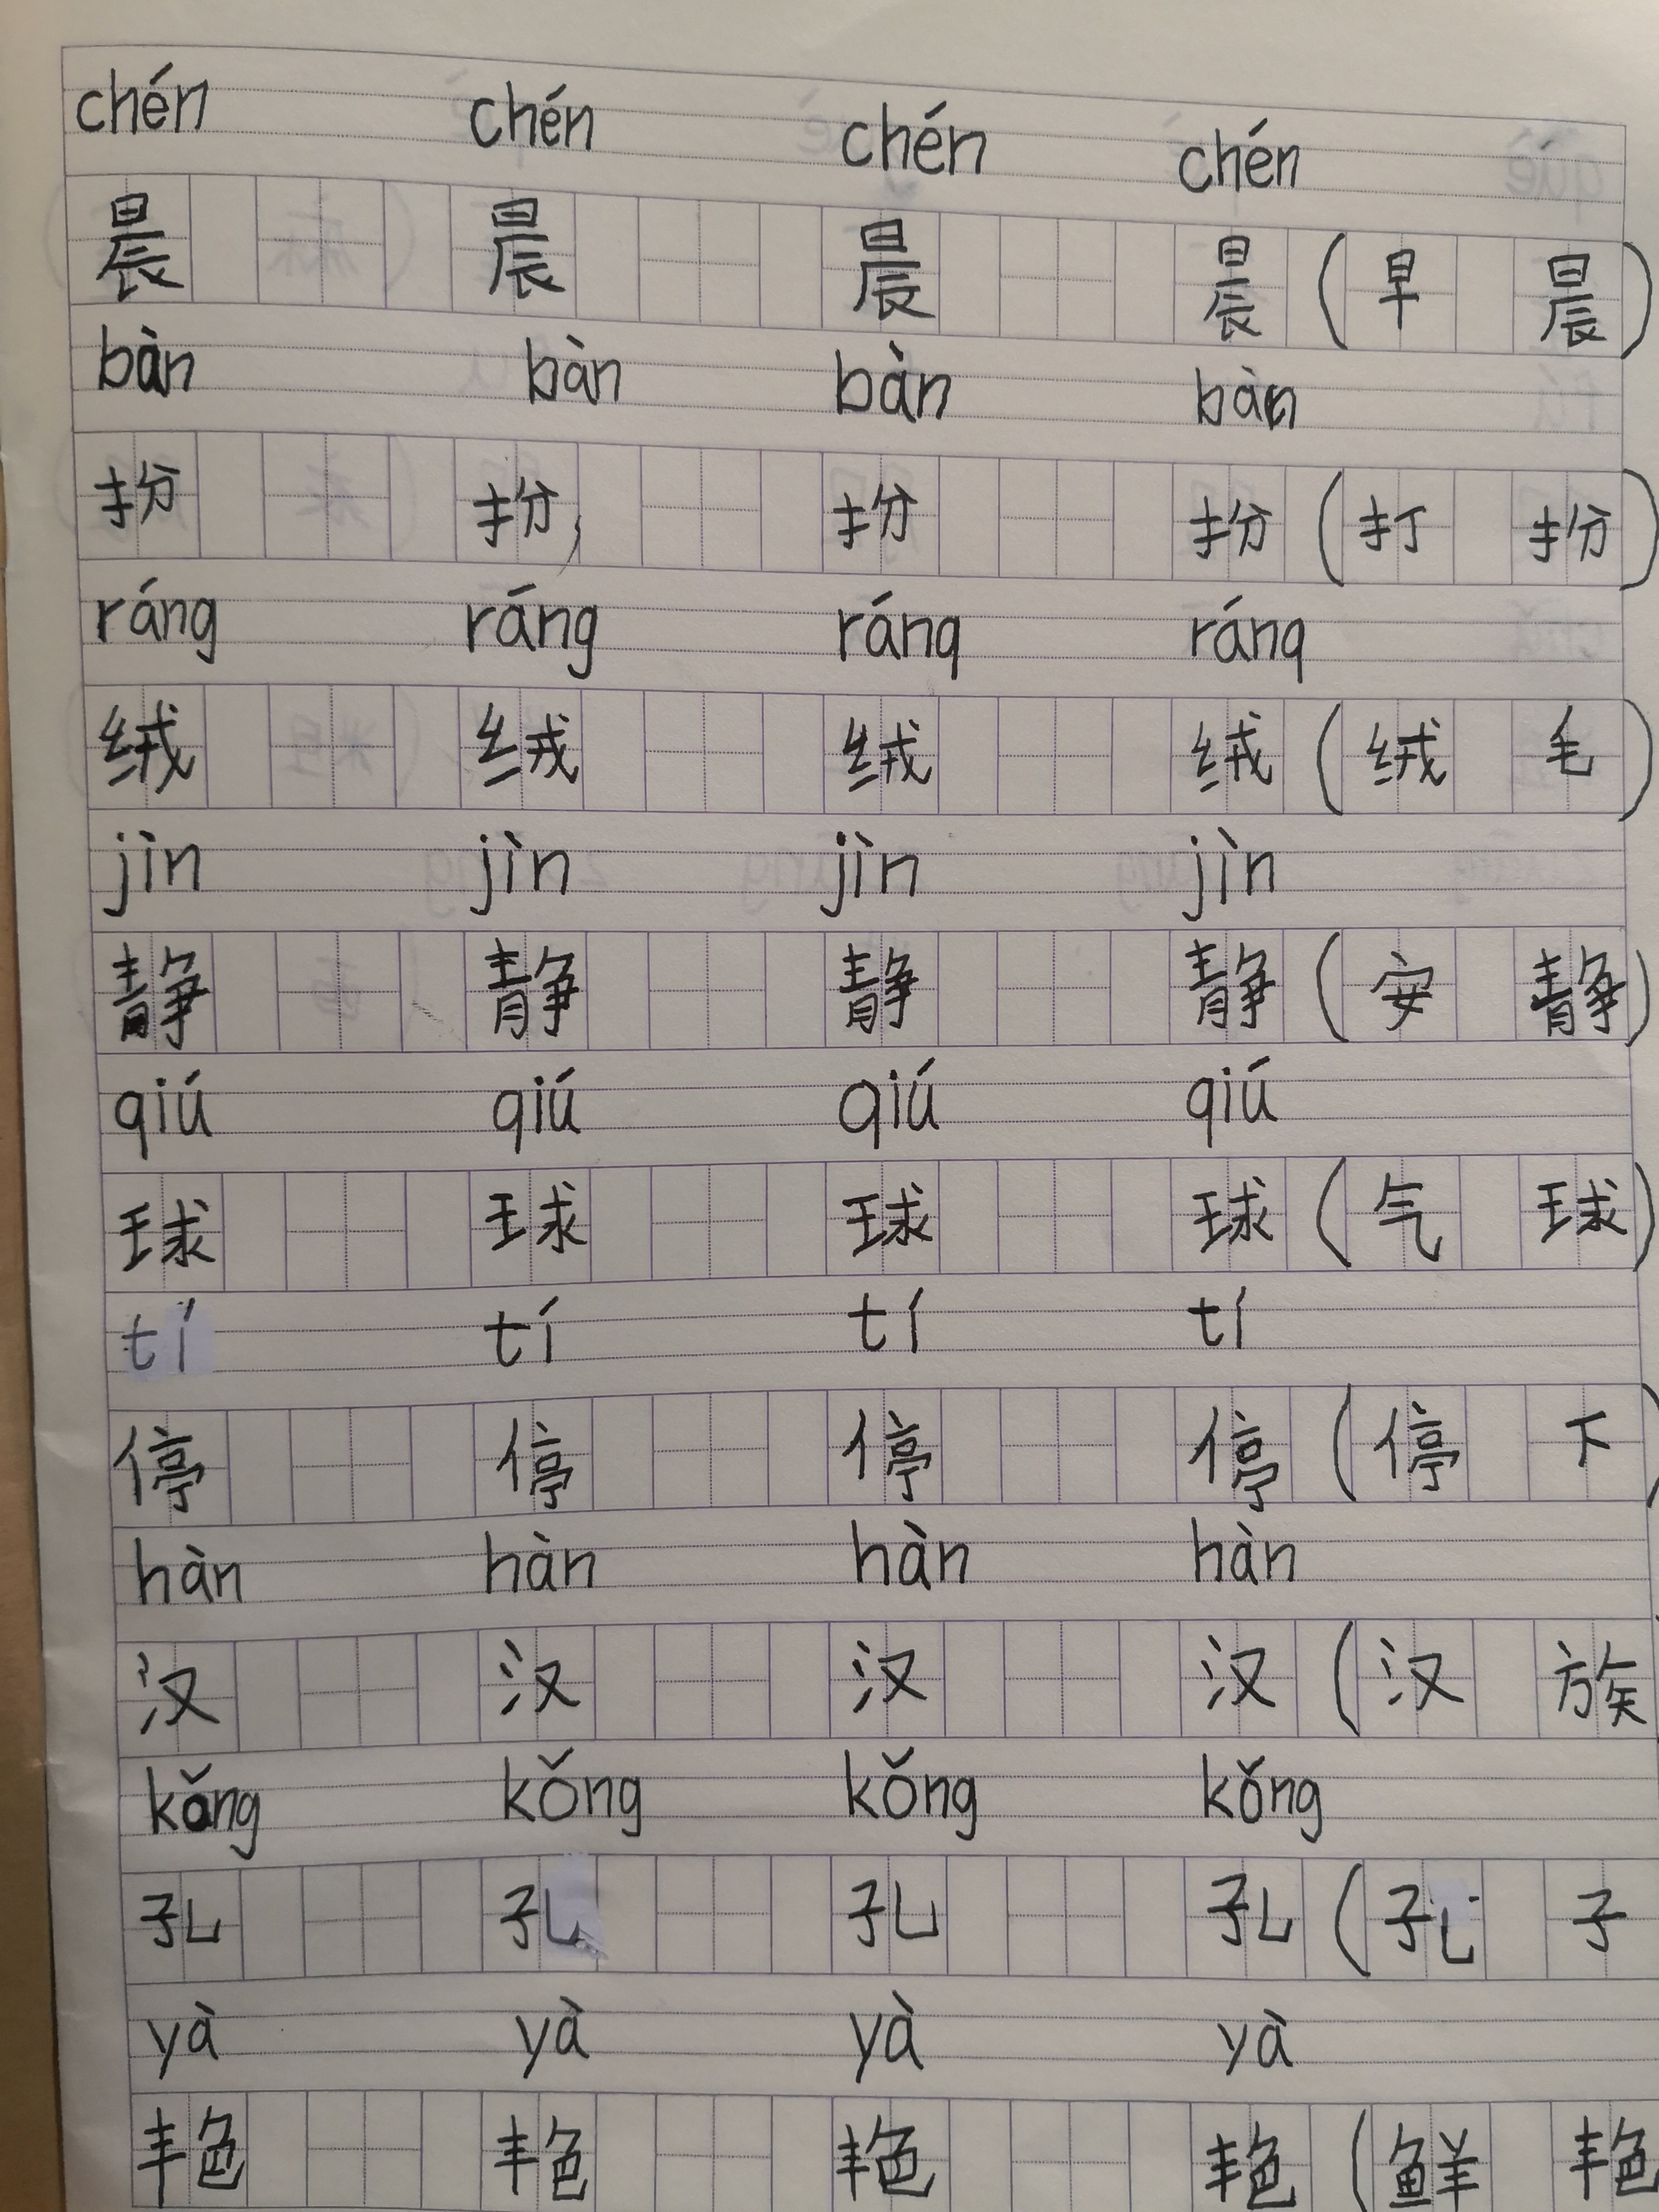 chén chén chén chén
晨 晨 晨 晨 (早 晨)
bàn bàn bàn bàn
扮 扮 扮 扮 (打 扮)
ráng ráng ránq ránq
绒 绒 绒 绒 (绒 毛)
jìn jìn jìn jìn
静 静 静 静 (安 静)
qiú qiú qiú qiú
球 球 球 球 (气 球)
tí tí tí tí
停 停 停 停 (停 下)
hàn hàn hàn hàn
汉 汉 汉 汉 (汉 族
kǒng kǒng kǒng kǒng
孔 孔 孔 孔 (孔 子
yà yà yà yà
艳 艳 艳 艳 (鲜 艳